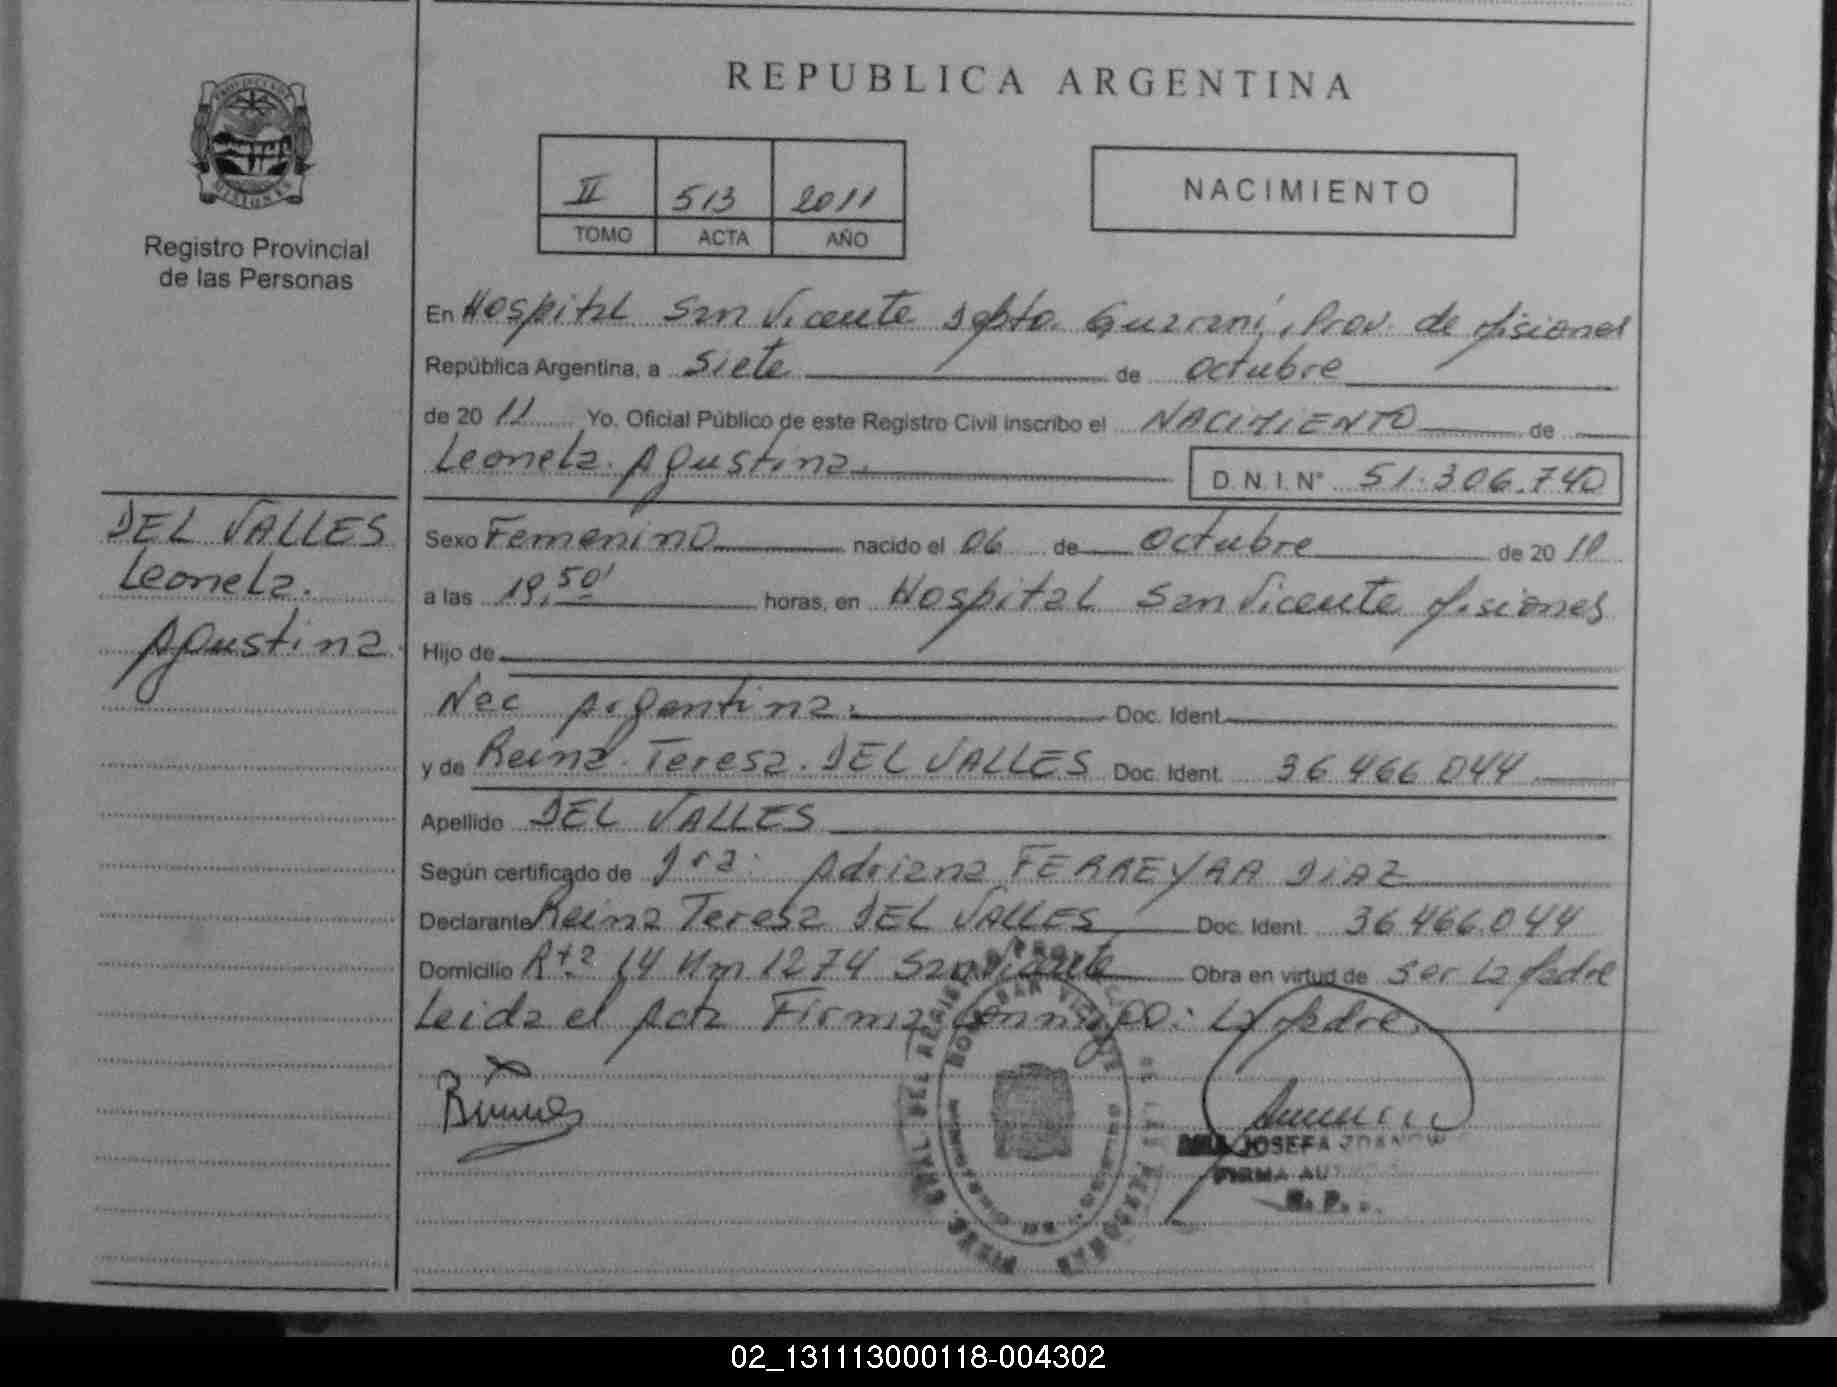 REPUBLICA ARGENTINA
Registro Provincial
de las Personas
II 513 2011
TOMO ACTA AÑO
NACIMIENTO
En Hospital San Vicente Dpto. Guarani, Prov. de Misiones
República Argentina, a Siete de octubre
de 20 11 Yo. Oficial Público de este Registro Civil inscribo el NACIMIENTO de
Leonela Agustina.
D. N. I. N° 51.306.740
DEL VALLES
Leonela.
Agustina.
Sexo Femenino nacido el 06 de octubre de 20 11
a las 19,50' horas, en Hospital San Vicente Misiones
Hijo de
Nac Argentina. Doc. Ident.
y de Reina Teresa. DEL VALLES Doc. Ident. 36 466 044
Apellido DEL VALLES
Según certificado de Dra: Adriana FERREYRA DIAZ
Declarante Reina Teresa DEL VALLES Doc. Ident. 36.466.044
Domicilio Rta 14 Km 1274 San Vicente Obra en virtud de ser La Madre
Leida el Acta Firma conmigo: La Madre.
JOSEFA
FIRMA
02_131113000118-004302